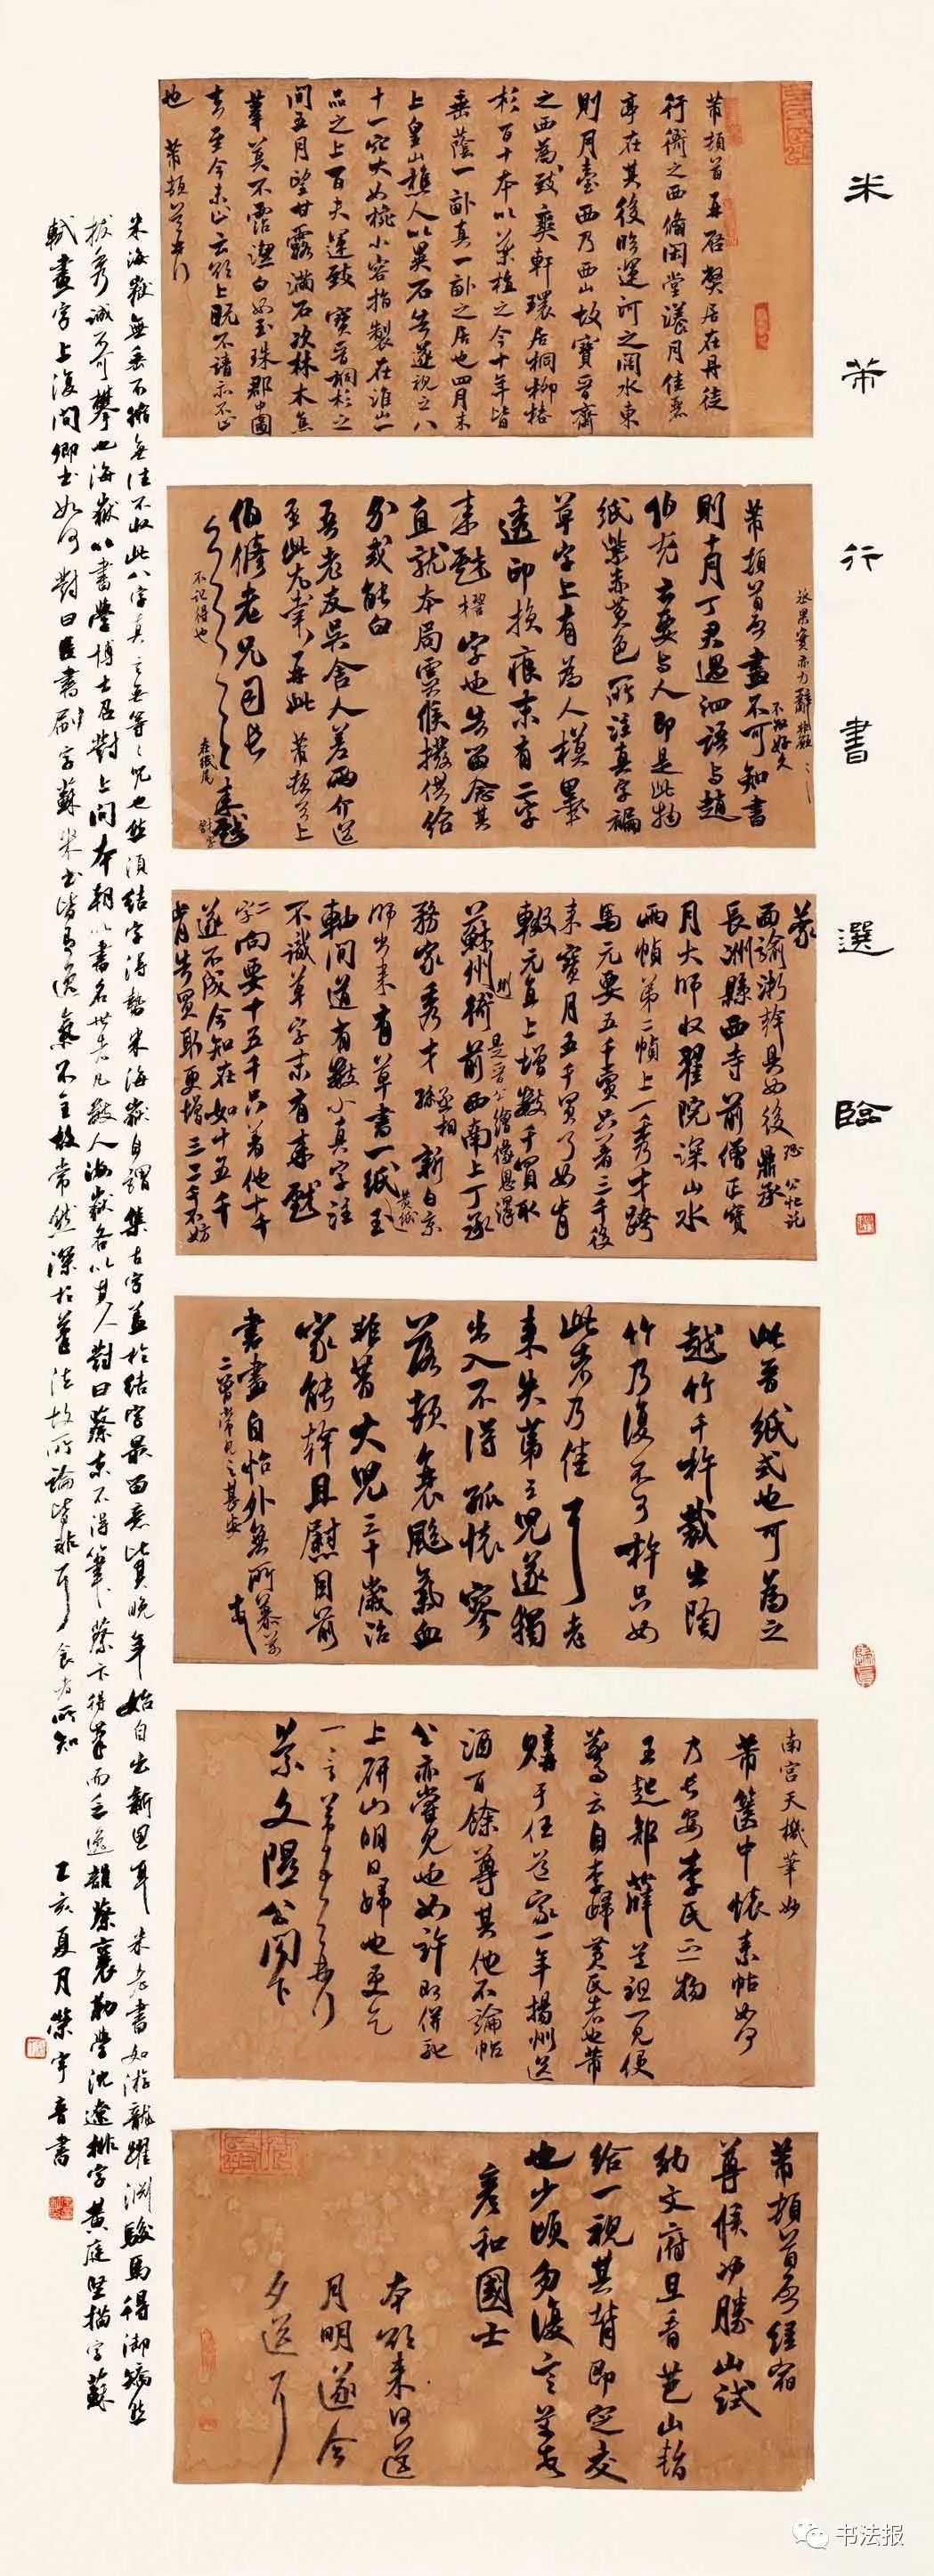 米芾行書選臨
芾頓首再啓弊居在丹徒
行衙之西脩閑堂漾月佳麗
亭在其後臨運河之闊水東
則月臺西乃西山故寶晉齋
之西為致爽軒環居桐柳椿
杉百十本以藥植之今十年皆
垂蔭一畝真一畝之居也四月末
上皇山樵人以異石告遂視之八
十一穴大如椀小容指製在淮山一
品之上百夫運致寶晉桐杉之
間五月望甘露滿石次林木焦
葦莫不霑潔白如玉珠郡中圖
去至今未止云欲上既不請亦不止
也 芾頓首再拜
芾頓首再啓畫不可知書
則十月丁君過泗語與趙
伯充云要與人即是此物
紙紫赤黃色所注真字褊
草字上有為人模墨
透印損痕末有二字
來戲櫂字也告留念其
直就本局虞候撥供給
分或能白
吾老友吳舍人差兩介送
至此尤幸再此 芾頓首上
伯脩老兄司長
不記得也
來戲
在紙尾
張果實亦力辭
不淑好久
蒙
面諭浙幹具如後
恐公忙託鼎承
長洲縣西寺前僧正寶
月大師收翟院深山水
兩幀第二幀上一秀才跨
馬元要五千賣只著三千後
來寶月五千買了如肯
輟元直上增數千買取
蘇州州衙前西南上丁承
是晉公繪像恩澤
務家秀才孫
丞相
新自京
師出來有草書一紙
黃紙
玉
軸間道有數小真字注
不識草字末有來戲
二字向要十五千只著他十千
遂不成今知在如十五千
肯告買取更增三二千不妨
此晉紙式也可為之
越竹千杵裁出陶
竹乃復不可杵只如
此者乃佳耳老
來失第三兒遂獨
出入不得孤懷寥
落頗衰颯氣血
非昔大兒三十歲治
家能幹且慰目前
書畫自怡外無所慕
二曾常見之甚安
芾
南宮天機筆妙
芾篋中懷素帖如何
乃長安李氏之物
王起部薛道祖一見便
驚云自李歸黃氏者也芾
購于任道家一年揚州送
酒百餘尊其他不論帖
公亦嘗見也如許即併馳
上研山明日歸也更乞
一言芾頓首再拜
景文隰公閣下
芾頓首再啓經宿
尊候沖勝山試
納文府且看芭山暫
給一視其背即定交
也少頃勿復言芾頓首
彥和國士
本欲來日送
月明遂今
夕送耳
米海嶽無垂不縮無往不收此八字真言無等等咒也然須結字得勢米海嶽自謂集古字蓋於結字最留意比其晚年始自出新意耳 米老書如游龍躍淵駿馬得御矯然
拔秀誠不可攀也海嶽以書學博士召對上問本朝以書名世者凡數人海嶽各以其人對曰蔡京不得筆蔡卞得筆而乏逸韻蔡襄勒字沈遼排字黃庭堅描字蘇
軾畫字上復問卿書如何對曰臣書刷字蘇米書皆有逸氣不主故常然深於筆法故所論皆非耳食者所知 己亥夏月榮宇音書
书法报